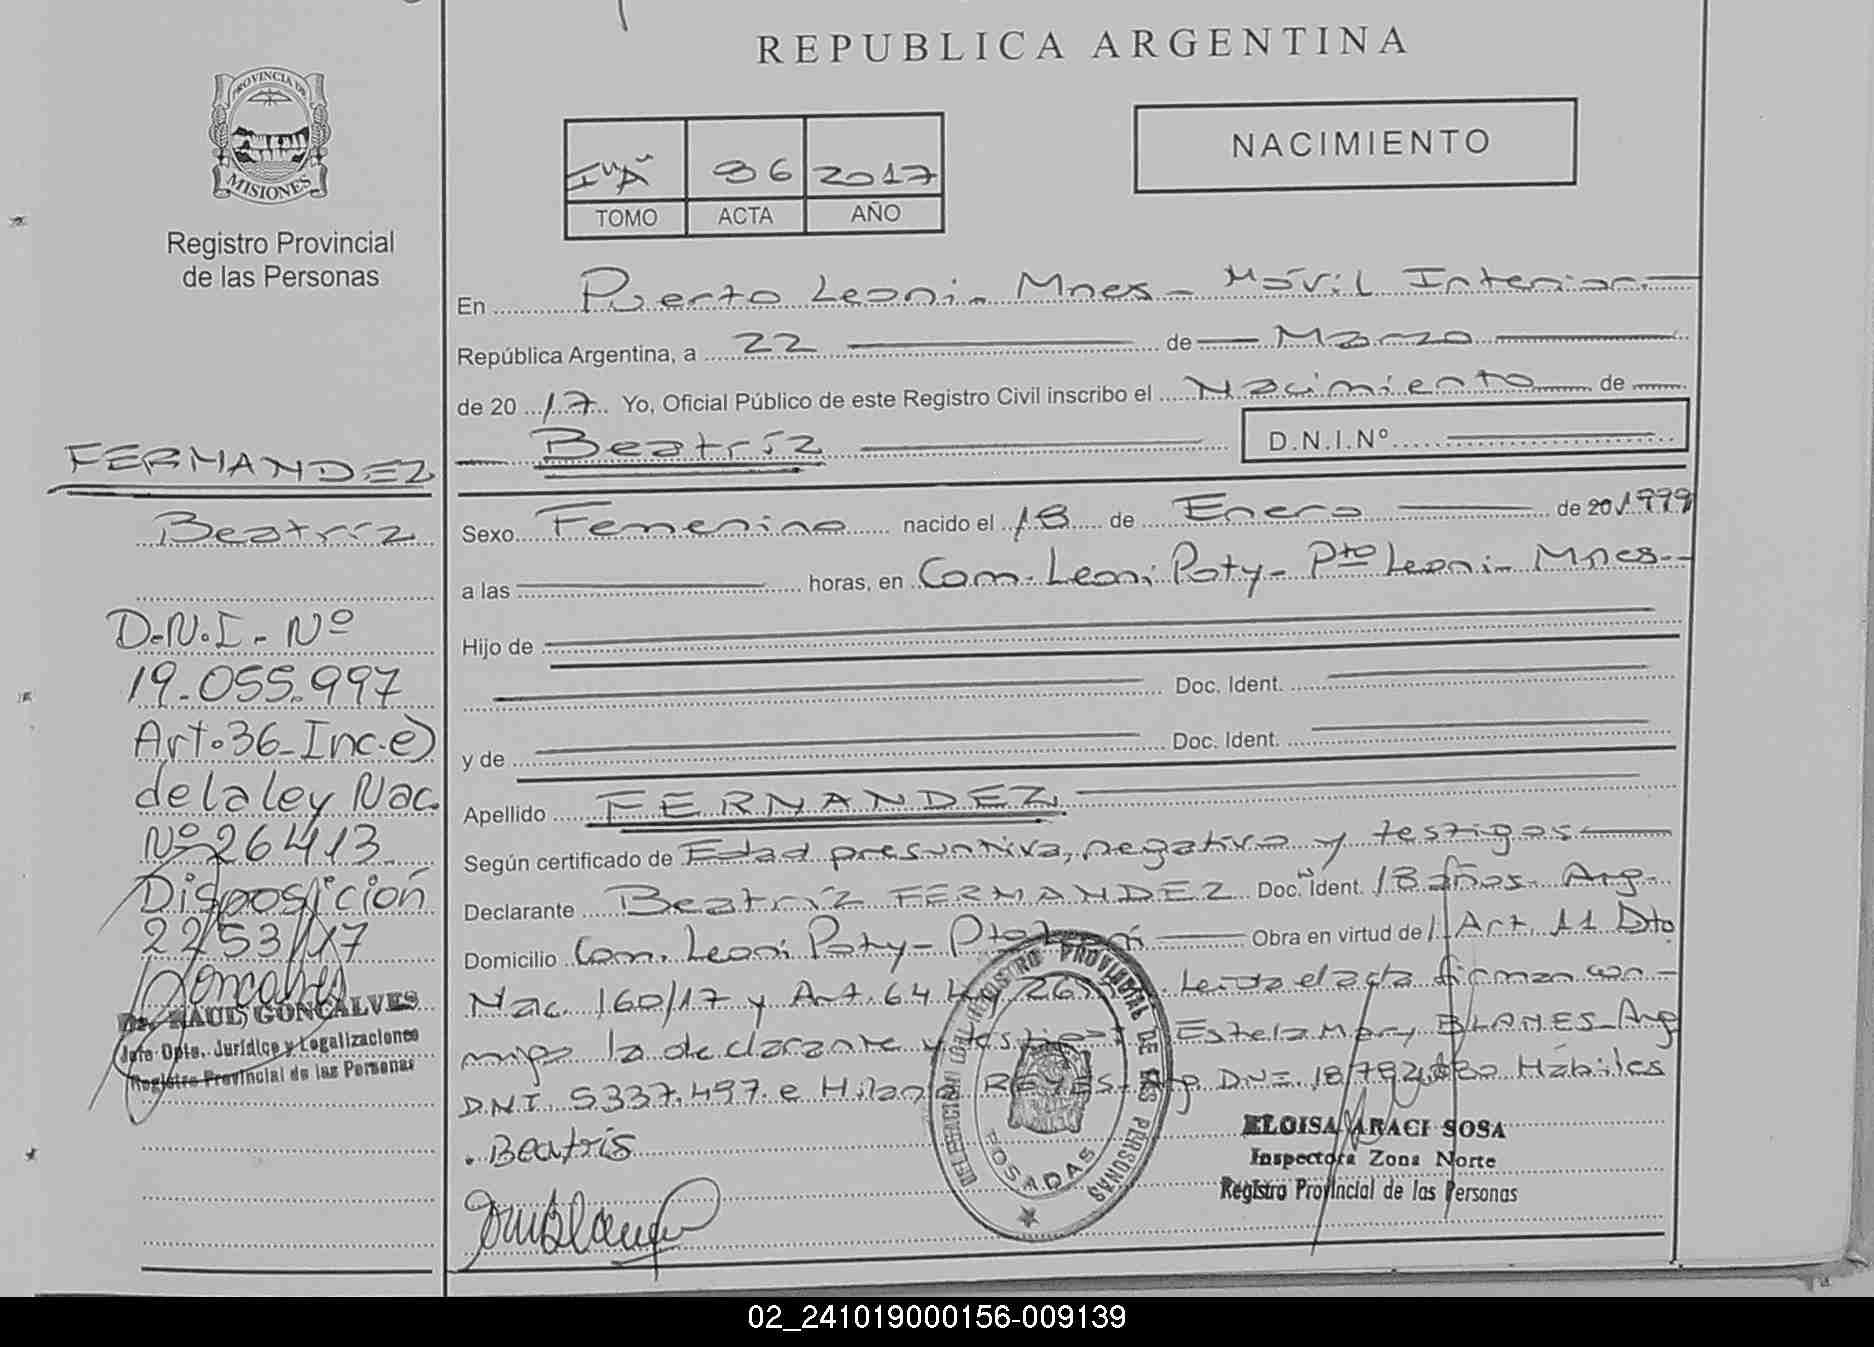 REPUBLICA ARGENTINA
PROVINCIA DE
MISIONES
Registro Provincial
de las Personas
NACIMIENTO
86 2017
TOMO ACTA AÑO
En Puerto Leoni- Mnes- Móvil Interior.
República Argentina, a 22 de Marzo
de 20 17 Yo, Oficial Público de este Registro Civil inscribo el Nacimiento de
Beatríz D.N.I.Nº
Sexo Femenino nacido el 18 de Enero de 20 1999
a las horas, en Com. Leoni Poty- Pto Leoni- Mnes-
Hijo de
Doc. Ident.
y de Doc. Ident.
Apellido FERNANDEZ
Según certificado de Edad presuntiva, negativo y testigos
Declarante Beatríz FERNANDEZ Doc. Ident. 18 años- Arg-
Domicilio Com. Leoni Poty- Pto Leoni Obra en virtud de Art. 11 Dto
Nac. 160/17 y Art. 64 Leída el acta firman con-
migo la declarante y testigos Estela Mary BLANES- Arg
DNI 5337.497. e Hilario REYES Arg DNI. Hábiles
. Beatris
FERNANDEZ
Beatríz
D.N.I. Nº
19.055.997
Art.36-Inc.e)
de la ley Nac.
Nº 26413
Disposición
2253/17
Goncalves
Dr. RAUL GONCALVES
Jefe Dpto. Jurídico y Legalizaciones
Registro Provincial de las Personas
REGISTRO PROVINCIAL DE LAS PERSONAS
POSADAS
ELOISA ARACI SOSA
Inspectora Zona Norte
Registro Provincial de las Personas
02_241019000156-009139